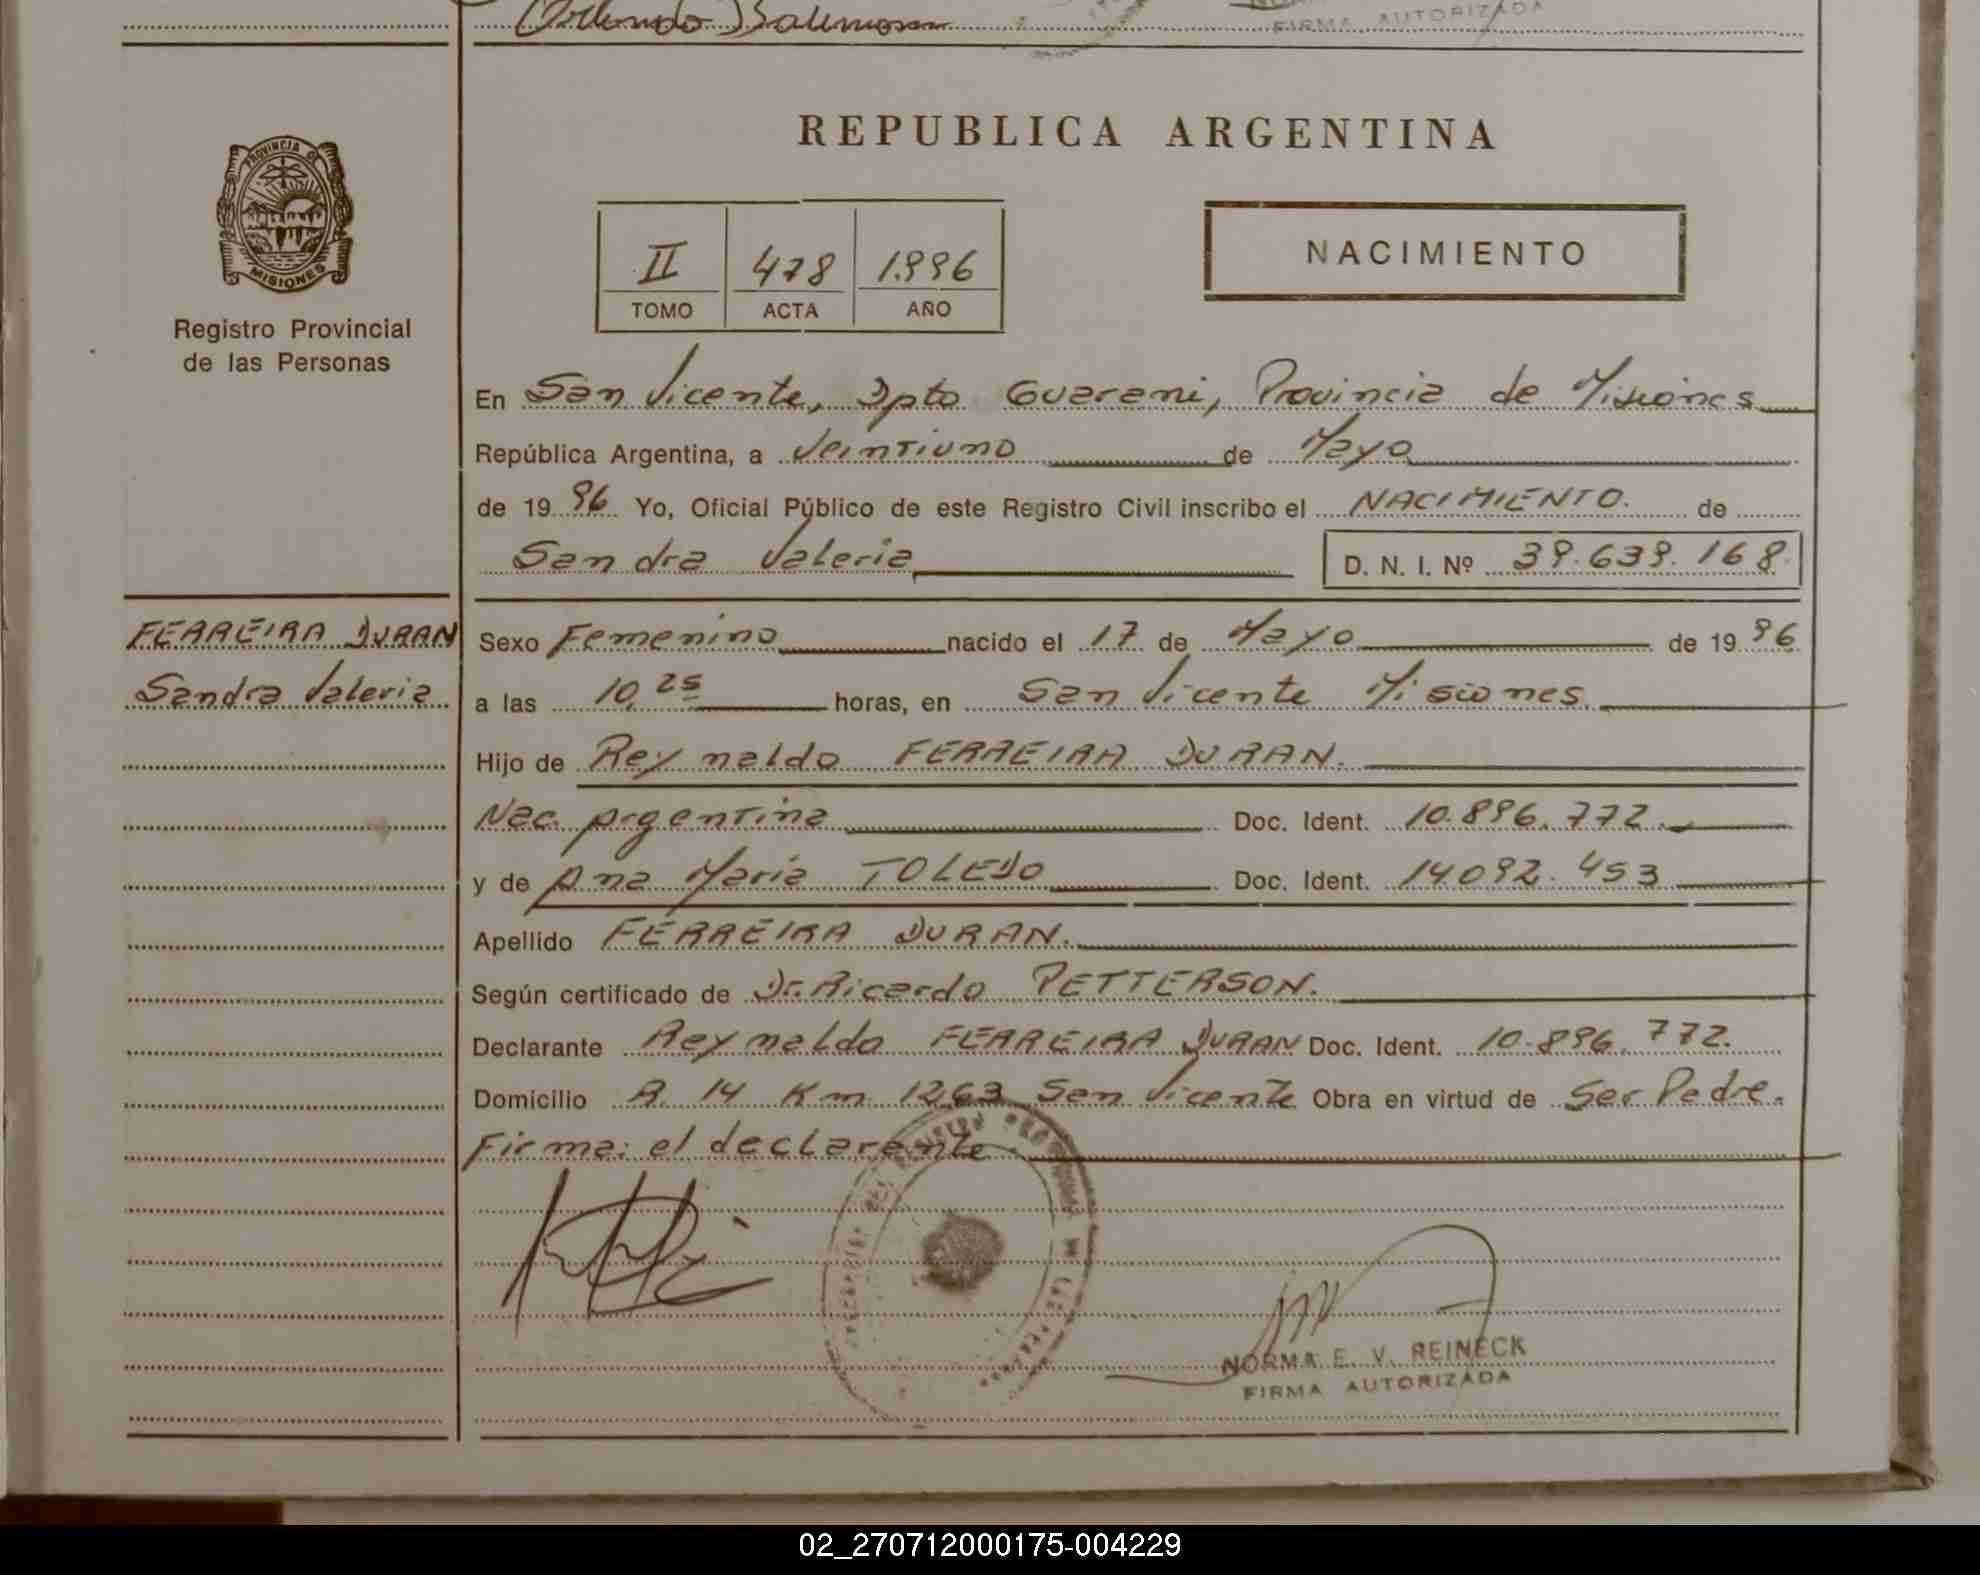 Orlando
FIRMA AUTORIZADA
PROVINCIA DE
MISIONES
Registro Provincial
de las Personas
FERREIRA DURAN
Sandra Valeria
REPUBLICA ARGENTINA
II 478 1.996
TOMO ACTA AÑO
NACIMIENTO
En San Vicente, Dpto Guarani, Provincia de Misiones
República Argentina, a Veintiuno de Mayo
de 1996 Yo, Oficial Público de este Registro Civil inscribo el NACIMIENTO. de
Sandra Valeria D. N. I. Nº 39.639.168
Sexo Femenino nacido el 17 de Mayo de 1996
a las 10,25 horas, en San Vicente Misiones
Hijo de Reynaldo FERREIRA DURAN.
Nac. Argentina Doc. Ident. 10.896.772
y de Ana Maria TOLEDO Doc. Ident. 14.092.453
Apellido FERREIRA DURAN.
Según certificado de Dr. Ricardo PETTERSON.
Declarante Reynaldo FERREIRA DURAN Doc. Ident. 10.896.772.
Domicilio R. 14 Km 1263 San Vicente Obra en virtud de Ser Padre.
Firma: el declarante
NORMA E. V. REINECK
FIRMA AUTORIZADA
02_270712000175-004229